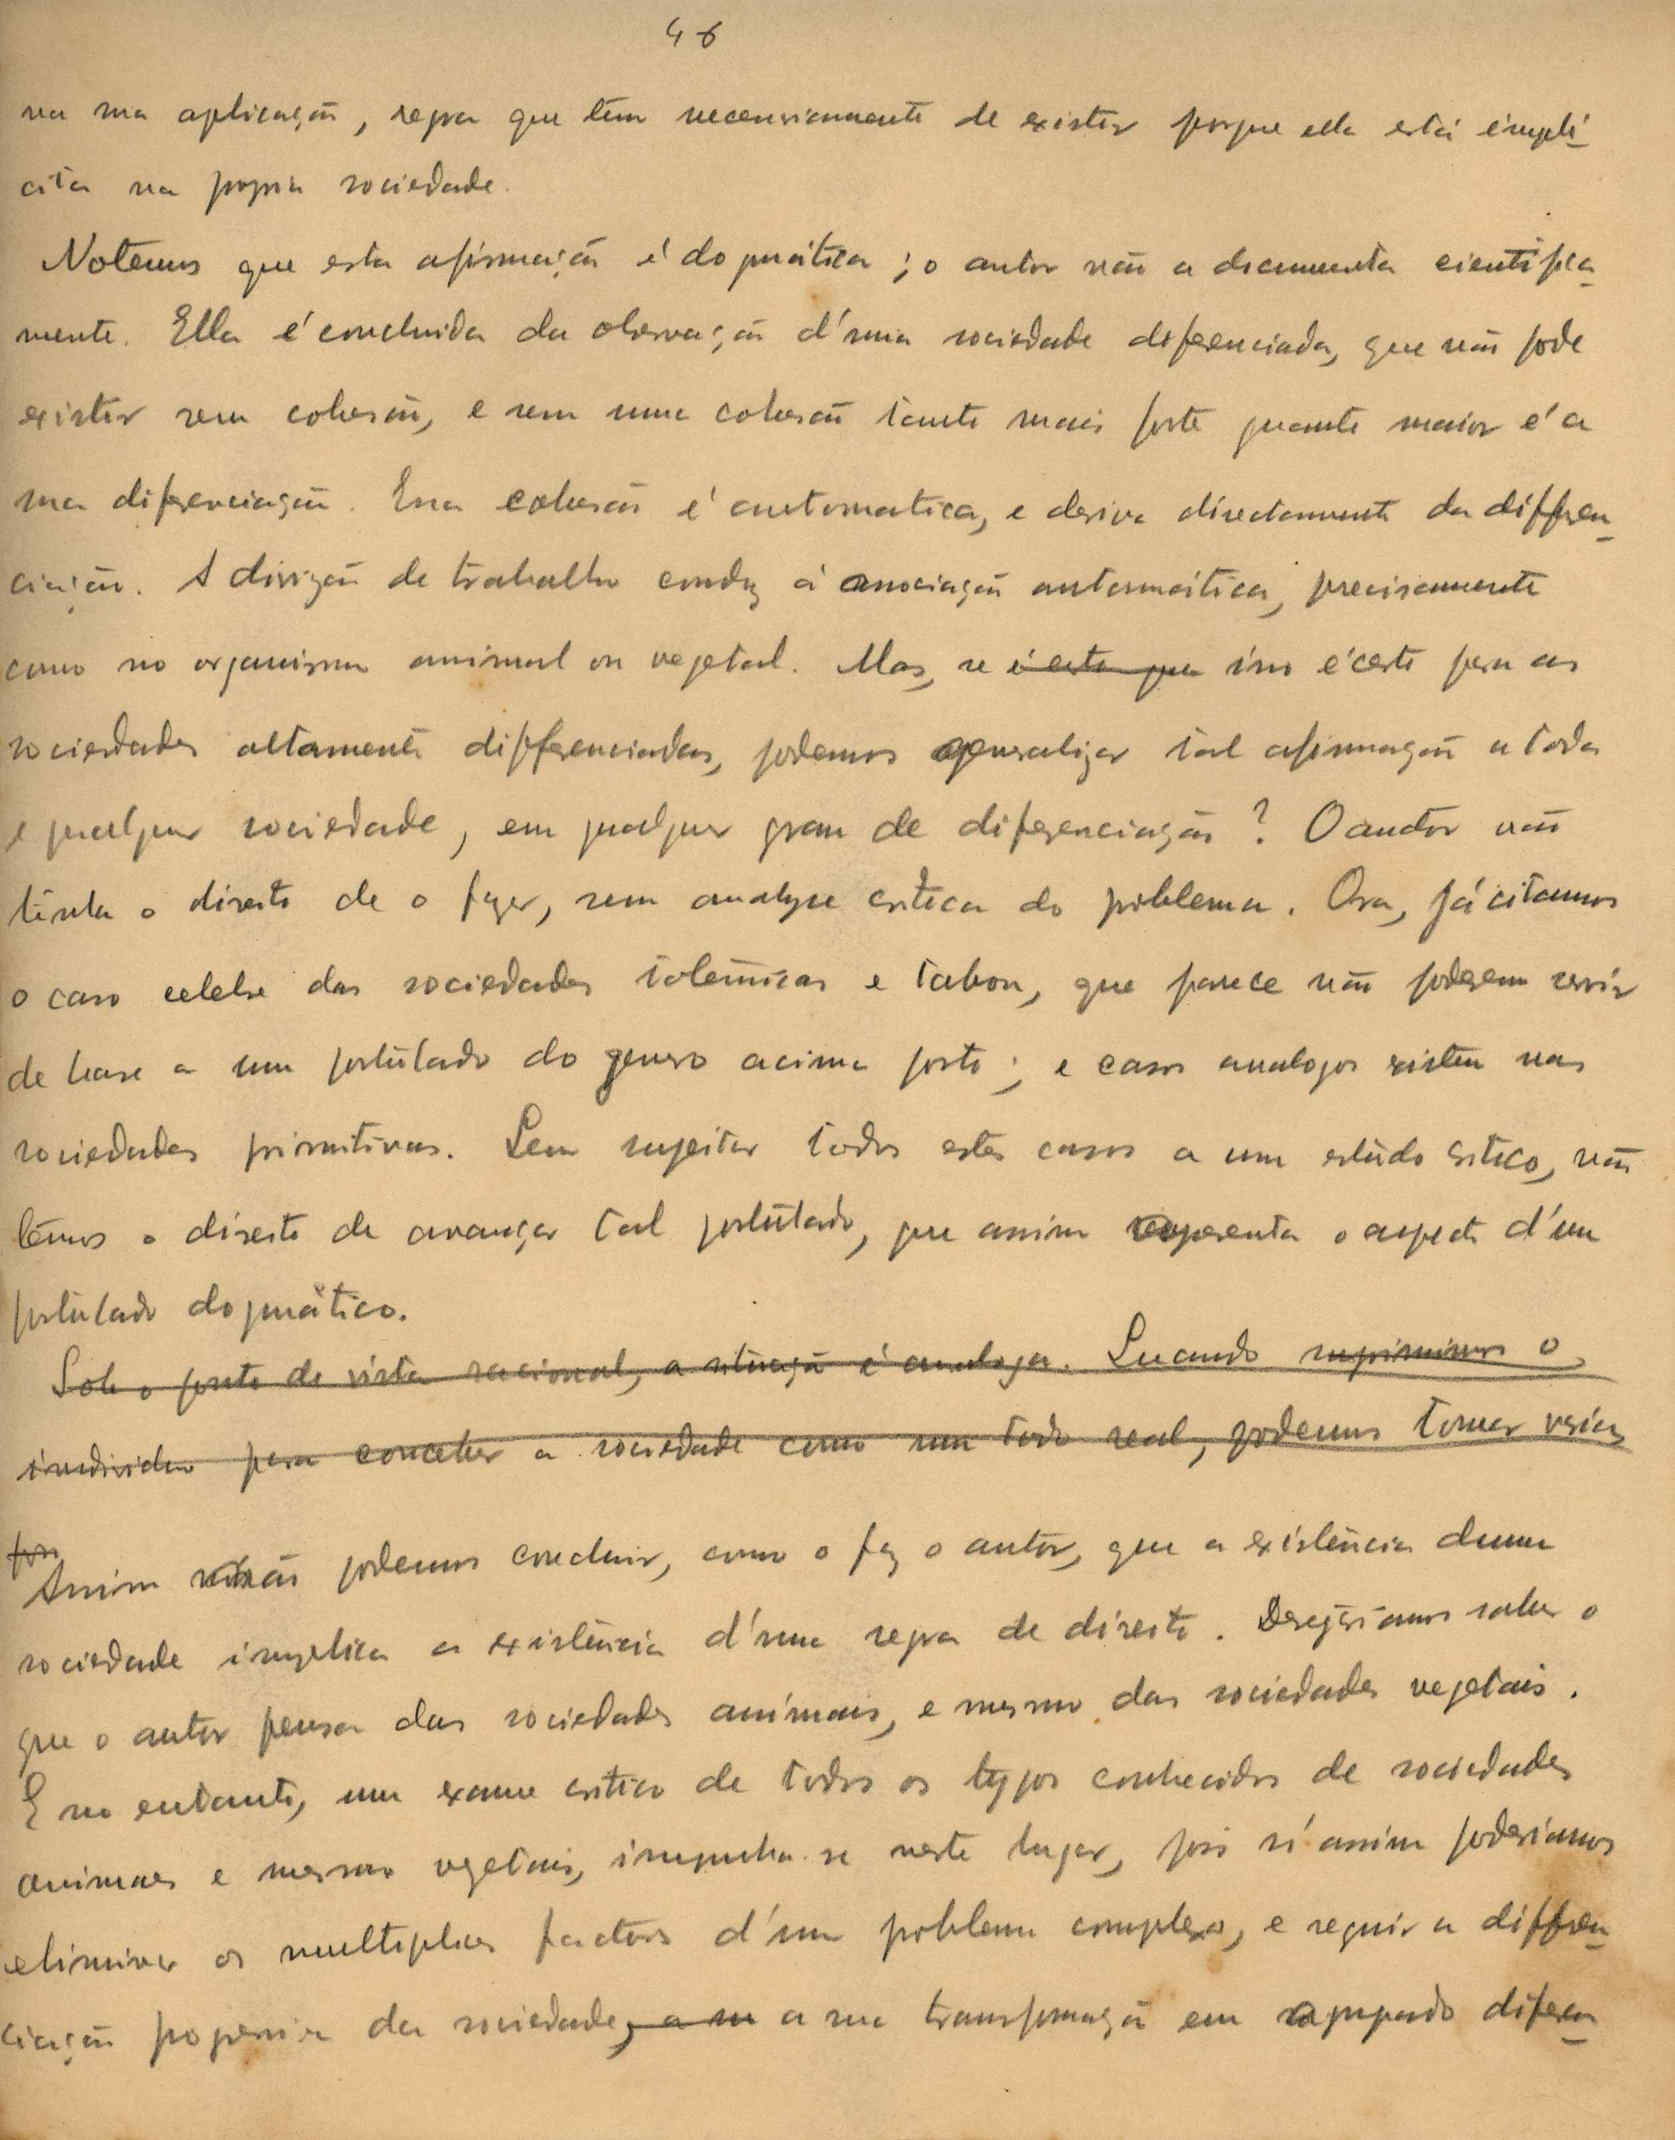 46
na sua aplicação, regra que tem necessariamente de existir porque ella está implí-
cita na propria sociedade.
Notemos que esta afirmação é dogmática; o autor não a documenta cientifica-
mente. Ella é concluida da observação d'uma sociedade diferenciada, que não pode
existir sem cohesão, e sem uma cohesão tanto mais forte quanto maior é a
sua diferenciação. Essa cohesão é automatica, e deriva directamente da differen-
ciação. A divisão de trabalho conduz á associação automática, precisamente
como no organismo animal ou vegetal. Mas, se é certo que isso é certo para as
sociedades altamente differenciadas, podemos generalizar tal afirmação a toda
e qualquer sociedade, em qualquer grau de diferenciação? O autor não
tinha o direito de o fazer, sem analyse critica do problema. Ora, já citamos
o caso celebre das sociedades totémicas e tabou, que parece não poderem servir
de base a um postulado do genero acima posto; e casos analogos existem nas
sociedades primitivas. Sem sujeitar todos estes casos a um estudo critico, não
temos o direito de avançar tal postulado, que assim representa o aspecto d'um
postulado dogmático.
Sob o ponto de vista racional, a situação é analoga. Quando suprimimos o
individuo para conceber a sociedade como um todo real, podemos tomar varias
Assim não podemos concluir, como o faz o autor, que a existência duma
sociedade implica a existência d'uma regra de direito. Desejariamos saber o
que o autor pensa das sociedades animais, e mesmo das sociedades vegetais.
E no entanto, um exame critico de todos os typos conhecidos de sociedades
animaes e mesmo vegetais, impunha-se neste lugar, pois só assim poderiamos
eliminar os multiplices factores d'um problema complexo, e seguir a differen-
ciação progressiva da sociedade, a su a sua transformação em agrupado diferen-